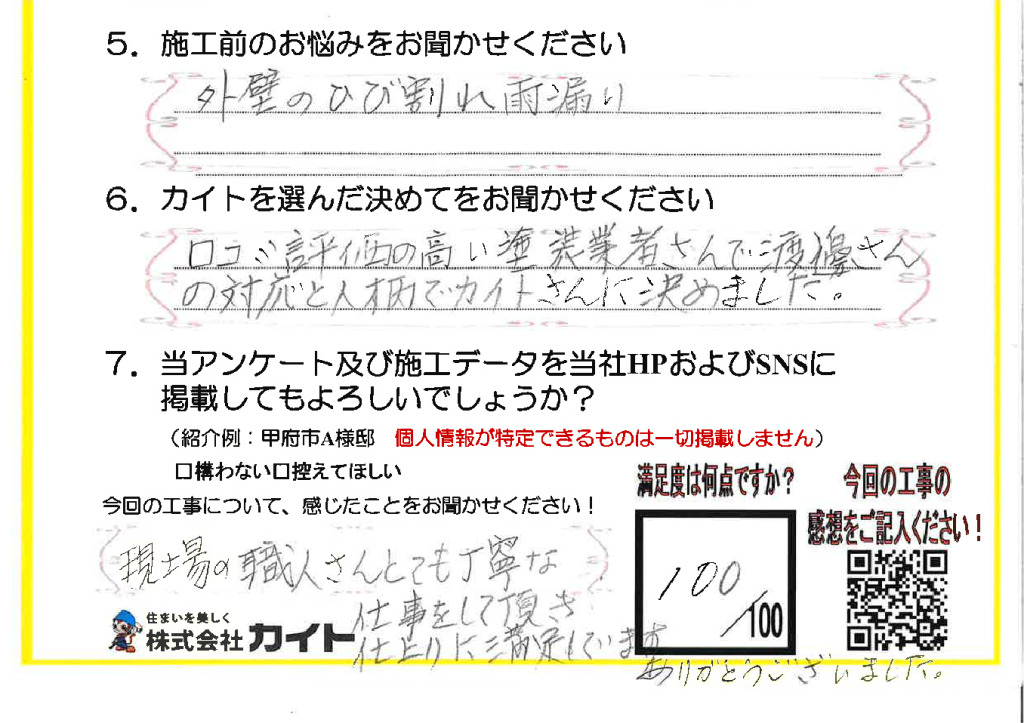 5．施工前のお悩みをお聞かせください
外壁のひび割れ雨漏り
6．カイトを選んだ決めてをお聞かせください
口コミ評価の高い塗装業者さんで渡邊さん
の対応と人柄でカイトさんに決めました。
7．当アンケート及び施工データを当社HPおよびSNSに
掲載してもよろしいでしょうか？
（紹介例：甲府市A様邸　個人情報が特定できるものは一切掲載しません）
□構わない□控えてほしい
今回の工事について、感じたことをお聞かせください！
現場の職人さんとても丁寧な
仕事をして頂き
仕上りに満足しています
ありがとうございました。
満足度は何点ですか？
100/100
今回の工事の
感想をご記入ください！
住まいを美しく
株式会社カイト